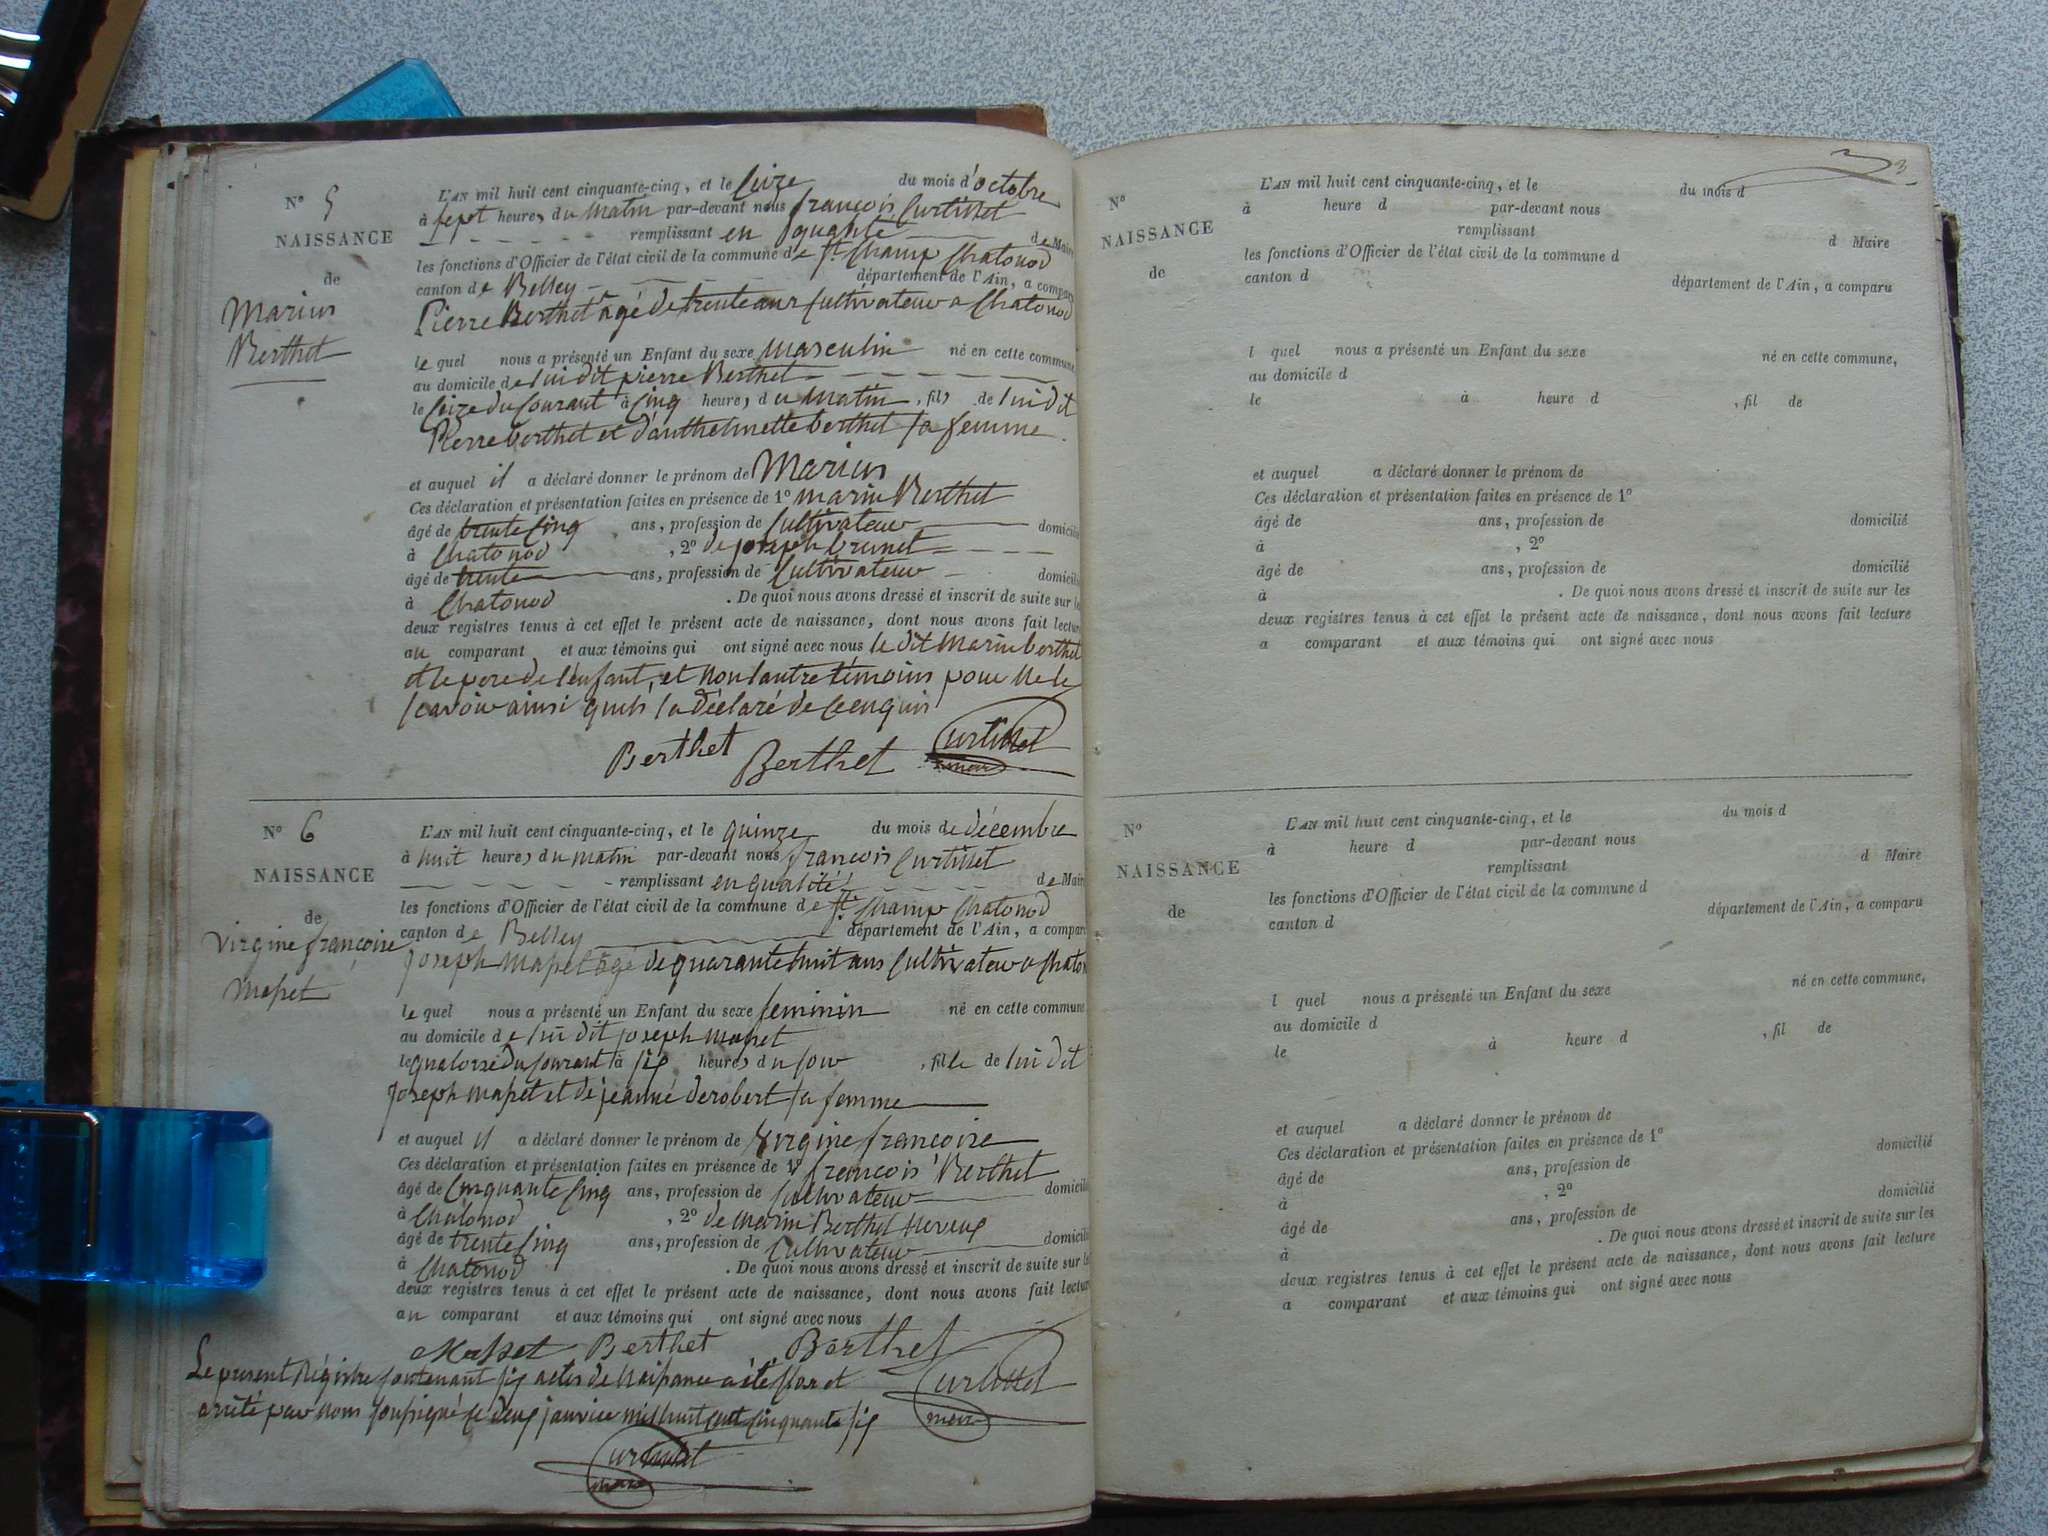 N° 5
NAISSANCE
de
Marius
Berthet
L'AN mil huit cent cinquante-cinq, et le seize du mois d'octobre
à sept heures du matin par-devant nous françois Curtillet
remplissant en qualité de Maire
les fonctions d'Officier de l'état civil de la commune de St. Champ Chatonod
canton de Belley département de l'Ain, a comparu
Pierre Berthet âgé de trente ans Cultivateur a Chatonod
le quel nous a présenté un Enfant du sexe masculin né en cette commune
au domicile de lui dit pierre Berthet
le seize du courant à cinq heures du matin, fils de lui dit
Pierre berthet et d'anthelmette berthet sa femme.
et auquel il a déclaré donner le prénom de Marius
Ces déclaration et présentation faites en présence de 1° marin Berthet
âgé de trente cinq ans, profession de Cultivateur domicilié
à Chatonod, 2° de joseph brunet
âgé de trente ans, profession de Cultivateur domicilié
à Chatonod. De quoi nous avons dressé et inscrit de suite sur les
deux registres tenus à cet effet le présent acte de naissance, dont nous avons fait lecture
au comparant et aux témoins qui ont signé avec nous le dit Marin berthet
et le pere de l'enfant, et non l'autre témoins pour ne le
scavoir ainsi qu'il la déclaré de ce enquis
Berthet Berthet Curtillet
maire
N° 6
NAISSANCE
de
Virgine françoise
Masset
L'AN mil huit cent cinquante-cinq, et le quinze du mois de décembre
à huit heures du matin par-devant nous françois Curtillet
remplissant en qualité de Maire
les fonctions d'Officier de l'état civil de la commune de St. Champ Chatonod
canton de Belley département de l'Ain, a comparu
Joseph Masset âgé de quarante huit ans Cultivateur a Chaton
le quel nous a présenté un Enfant du sexe feminin né en cette commune
au domicile de lui dit joseph masset
le quatorze du courant à six heures du soir, fille de lui dit
Joseph masset et de jeanne derobert sa femme
et auquel il a déclaré donner le prénom de Virgine françoise
Ces déclaration et présentation faites en présence de 1° françois Berthet
âgé de cinquante cinq ans, profession de Cultivateur domicilié
à Chatonod, 2° de Marin Berthet
âgé de trente cinq ans, profession de Cultivateur domicilié
à Chatonod. De quoi nous avons dressé et inscrit de suite sur les
deux registres tenus à cet effet le présent acte de naissance, dont nous avons fait lecture
au comparant et aux témoins qui ont signé avec nous
Masset Berthet Berthet
Le present Régistre contenant six actes de Naissance a été clos et Curtillet
arrêté par nous soussigné ce deux janvier mil huit cent cinquante six maire
Curtillet
maire
3
N°
NAISSANCE
de
L'AN mil huit cent cinquante-cinq, et le du mois d
à heure d par-devant nous
remplissant d Maire
les fonctions d'Officier de l'état civil de la commune d
canton d département de l'Ain, a comparu
l quel nous a présenté un Enfant du sexe né en cette commune,
au domicile d
le à heure d, fil de
et auquel a déclaré donner le prénom de
Ces déclaration et présentation faites en présence de 1°
âgé de ans, profession de domicilié
à, 2°
âgé de ans, profession de domicilié
à. De quoi nous avons dressé et inscrit de suite sur les
deux registres tenus à cet effet le présent acte de naissance, dont nous avons fait lecture
a comparant et aux témoins qui ont signé avec nous
N°
NAISSANCE
de
L'AN mil huit cent cinquante-cinq, et le du mois d
à heure d par-devant nous
remplissant d Maire
les fonctions d'Officier de l'état civil de la commune d
canton d département de l'Ain, a comparu
l quel nous a présenté un Enfant du sexe né en cette commune,
au domicile d
le à heure d, fil de
et auquel a déclaré donner le prénom de
Ces déclaration et présentation faites en présence de 1°
âgé de ans, profession de domicilié
à, 2°
âgé de ans, profession de domicilié
à. De quoi nous avons dressé et inscrit de suite sur les
deux registres tenus à cet effet le présent acte de naissance, dont nous avons fait lecture
a comparant et aux témoins qui ont signé avec nous